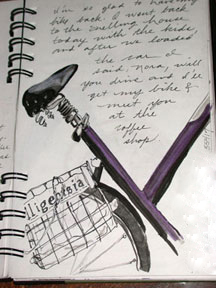 i'm so glad to having
bike back. I went back
to the smelling house
today with the kids,
and after we loaded
the car I
said, Nora, will
you drive and i'll
get my bike &
meet you
at the
coffee
shop.
lligentsia